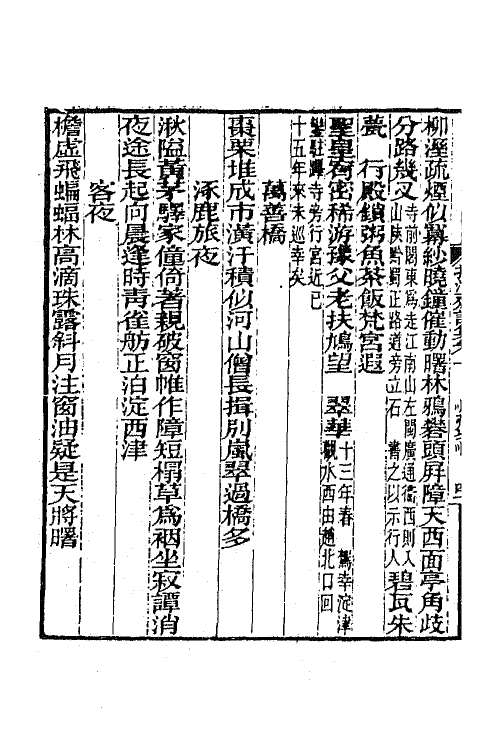 柳溼疏煙似冪紗曉鐘催動曙林鴉礬頭屛障天西面亭角歧
分路幾叉寺前閣東爲走江南山左閣廣通衢西則入山陝黔蜀正路道旁立石書之以示行人碧瓦朱
甍行殿鎖粥魚茶飯梵宮遐
聖皐齊密稀游豫父老扶鳩望翠華十三年春駕幸淀津觀水西由趙北口回
鑾駐蹕寺旁行宮近已十五年來未巡幸矣
萬善橋
棗栗堆成市潢汙積似河山僧長揖別嵐翠過橋多
涿鹿旅夜
湫隘黃茅驛家僮倚著親破窗帷作障短榻草爲裀坐寂譚消
夜途長起向晨逢時靑雀舫正泊淀西津
客夜
檐虛飛蝙蝠林高滴珠露斜月注窗油疑是天將曙